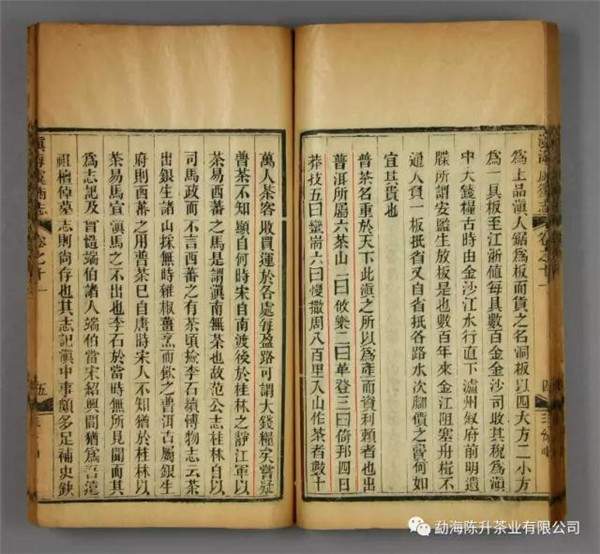 滇海虞衡志
卷之十一
四
爲上品滇人鋸爲板而貨之名洞板以四大方二小方
爲一具板至江浙值每具數百金金沙司收其稅爲滇
中大錢糧古時由金沙江水行直下瀘州敘府前明遺
牒所謂安監生放板是也數百年來金江阻塞舟楫不
通人負一板抵省又自省抵各路水次腳價之費何如
宜其貴也
普茶名重於天下此滇之所以爲產而資利賴者也出
普洱所屬六茶山一曰攸樂二曰革登三曰倚邦四曰
莽技五曰蠻耑六曰慢撒周八百里入山作茶者數十
萬人茶客收買運於各處每盈路可謂大錢糧矣嘗疑
普茶不知顯自何時宋自南渡後於桂林之靜江軍以
茶易西蕃之馬是謂滇南無茶也故范公志桂林自以
司馬政而不言西蕃之有茶頃撿李石續博物志云茶
出銀生諸山採無時雜椒薑烹而飲之普洱古屬銀生
府則西蕃之用普茶已自唐時宋人不知猶於桂林以
茶易馬宜滇馬之不出也李石於當時無所見聞而其
爲志記及曾慥端伯諸人端伯當宋紹興間猶爲吾遠
祖檀倬墓志則尚存也其志記滇中事頗多足補史缺
滇海虞衡志
卷之十一
五
勐海陈升茶业有限公司